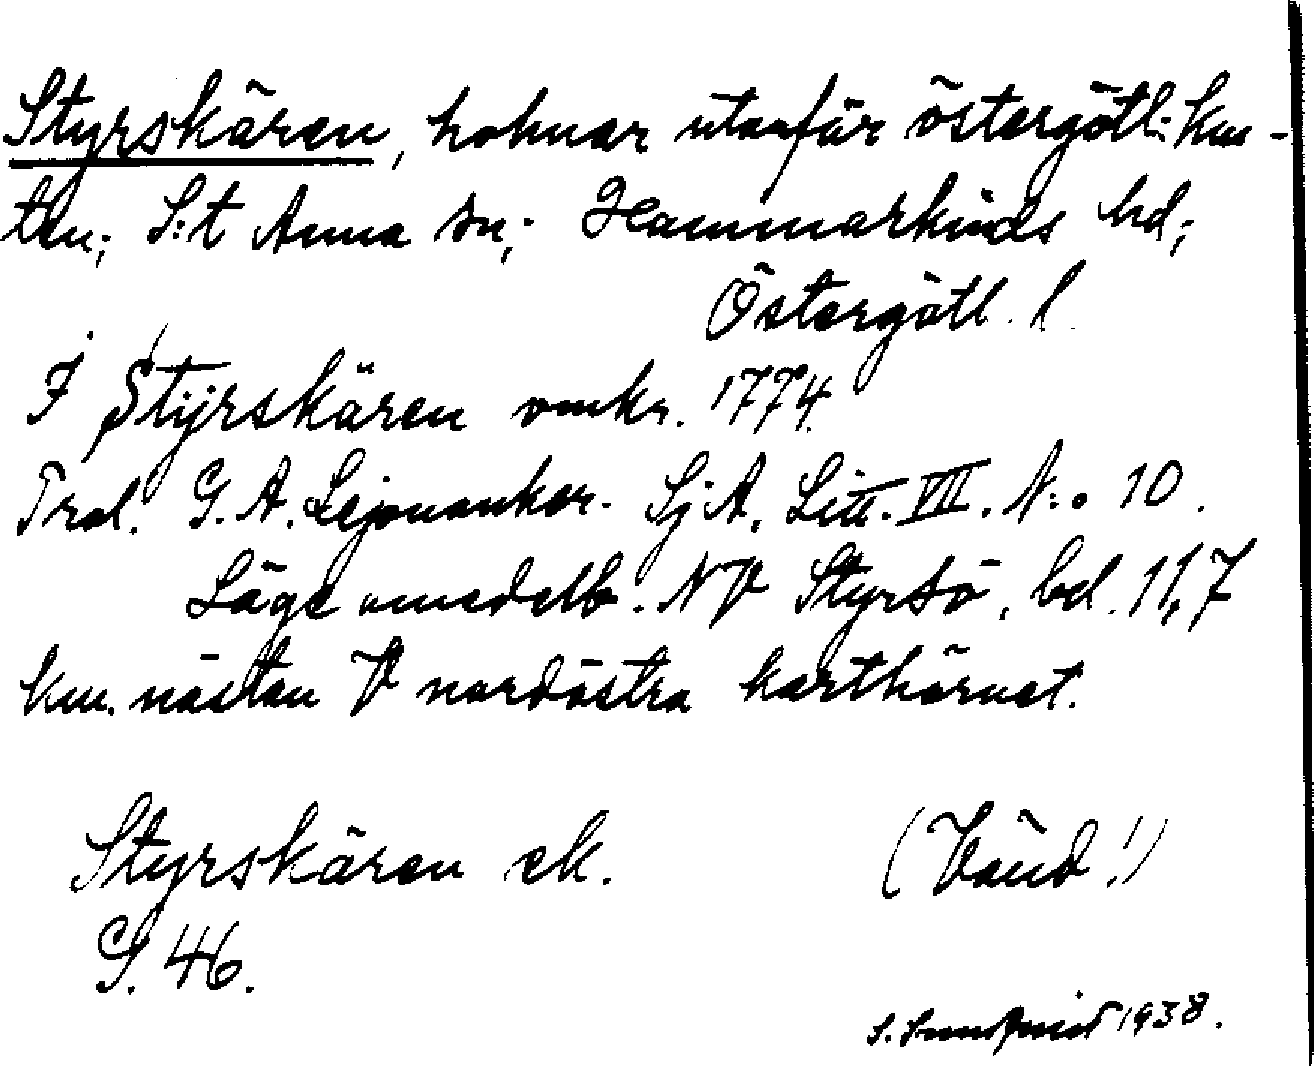 Styrskären, holmar utanför östergötl. kus-
ten; S:t Anna sn; Hammarkinds hd;
Östergötl. l.
I Stÿrskären omkr. 1774.
Trol. G. A. Lejonanker. SjA. Litt. VII. N:o 10.
Läge omedelb. NV Styrsö, bel. 11,7
km. nästan V nordöstra karthörnet.
Styrskären ek. (Vänd!)
G. 46.
S. 1938.